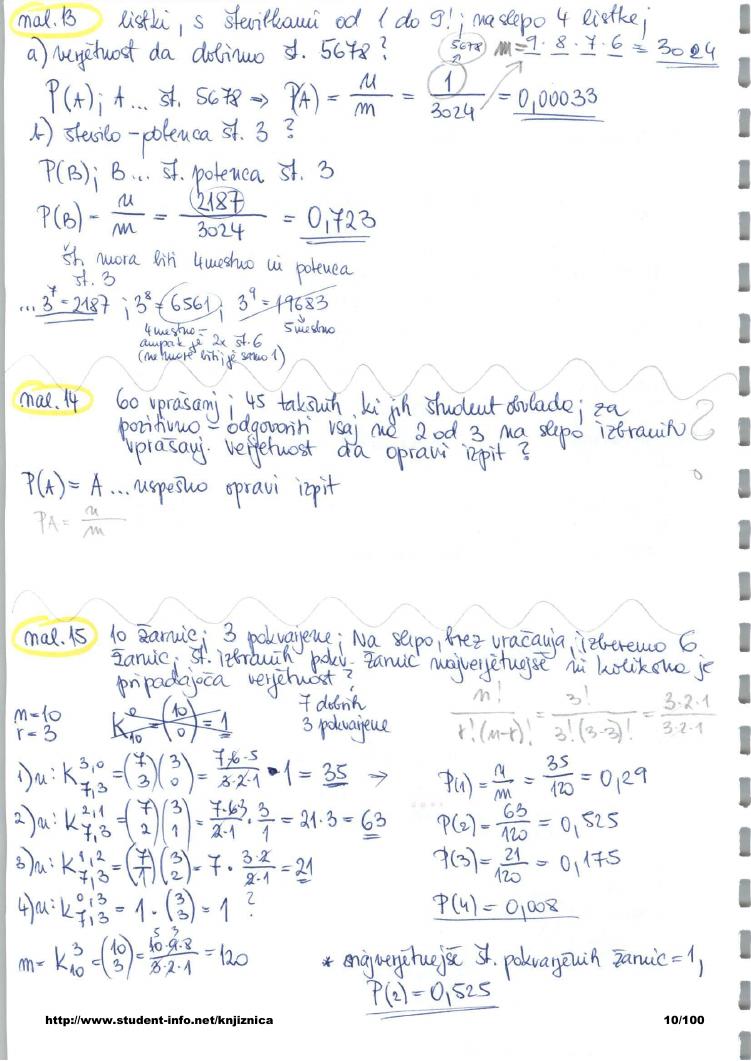 nal. 13 listki, s številkami od 1 do 9!; na slepo 4 listke;
a) verjetnost da dobimo št. 5678? 5678 m = 9 · 8 · 7 · 6 = 3024
P(A); A... št. 5678 ⇒ P(A) = n/m = 1/3024 = 0,00033
b) število - potenca št. 3?
P(B); B... št. potenca št. 3
P(B) = n/m = 2187/3024 = 0,723
Št. mora biti 4mestno in potenca
št. 3
... 3^7 = 2187 ; 3^8 = 6561 ; 3^9 = 19683
4mestno - 5mestno
ampak je 2x št. 6
(ne more biti, je samo 1)
nal. 14 60 vprašanj; 45 takšnih, ki jih študent obvlada; za
pozitivno - odgovoriti vsaj na 2 od 3 na slepo izbranih
vprašanj. verjetnost da opravi izpit?
P(A) = A... uspešno opravi izpit
PA = n/m
nal. 15 10 žarnic; 3 pokvarjene; Na slepo, brez vračanja, izberemo 6
žarnic; št. izbranih pokv. žarnic najverjetnejše in kolikšna je
pripadajoča verjetnost?
m = 10 K_10^0 = (10 0) = 1 7 dobrih n!/r!(n-r)! = 3!/3!(3-3)! = 3·2·1/3·2·1
r = 3 3 pokvarjene
1) n: K_7,3^3,0 = (7 3)(3 0) = 7·6·5/3·2·1 · 1 = 35 → P(1) = n/m = 35/120 = 0,29
2) n: K_7,3^2,1 = (7 2)(3 1) = 7·6 3/2·1 · 3/1 = 21·3 = 63 P(2) = 63/120 = 0,525
3) n: K_7,3^1,2 = (7 1)(3 2) = 7 · 3·2/2·1 = 21 P(3) = 21/120 = 0,175
4) n: K_7,3^0,3 = 1 · (3 3) = 1 ? P(4) = 0,008
m = K_10^3 = (10 3) = 10·9·8/3·2·1 = 120 5 3
* najverjetnejše št. pokvarjenih žarnic = 1,
P(2) = 0,525
http://www.student-info.net/knjiznica 10/100